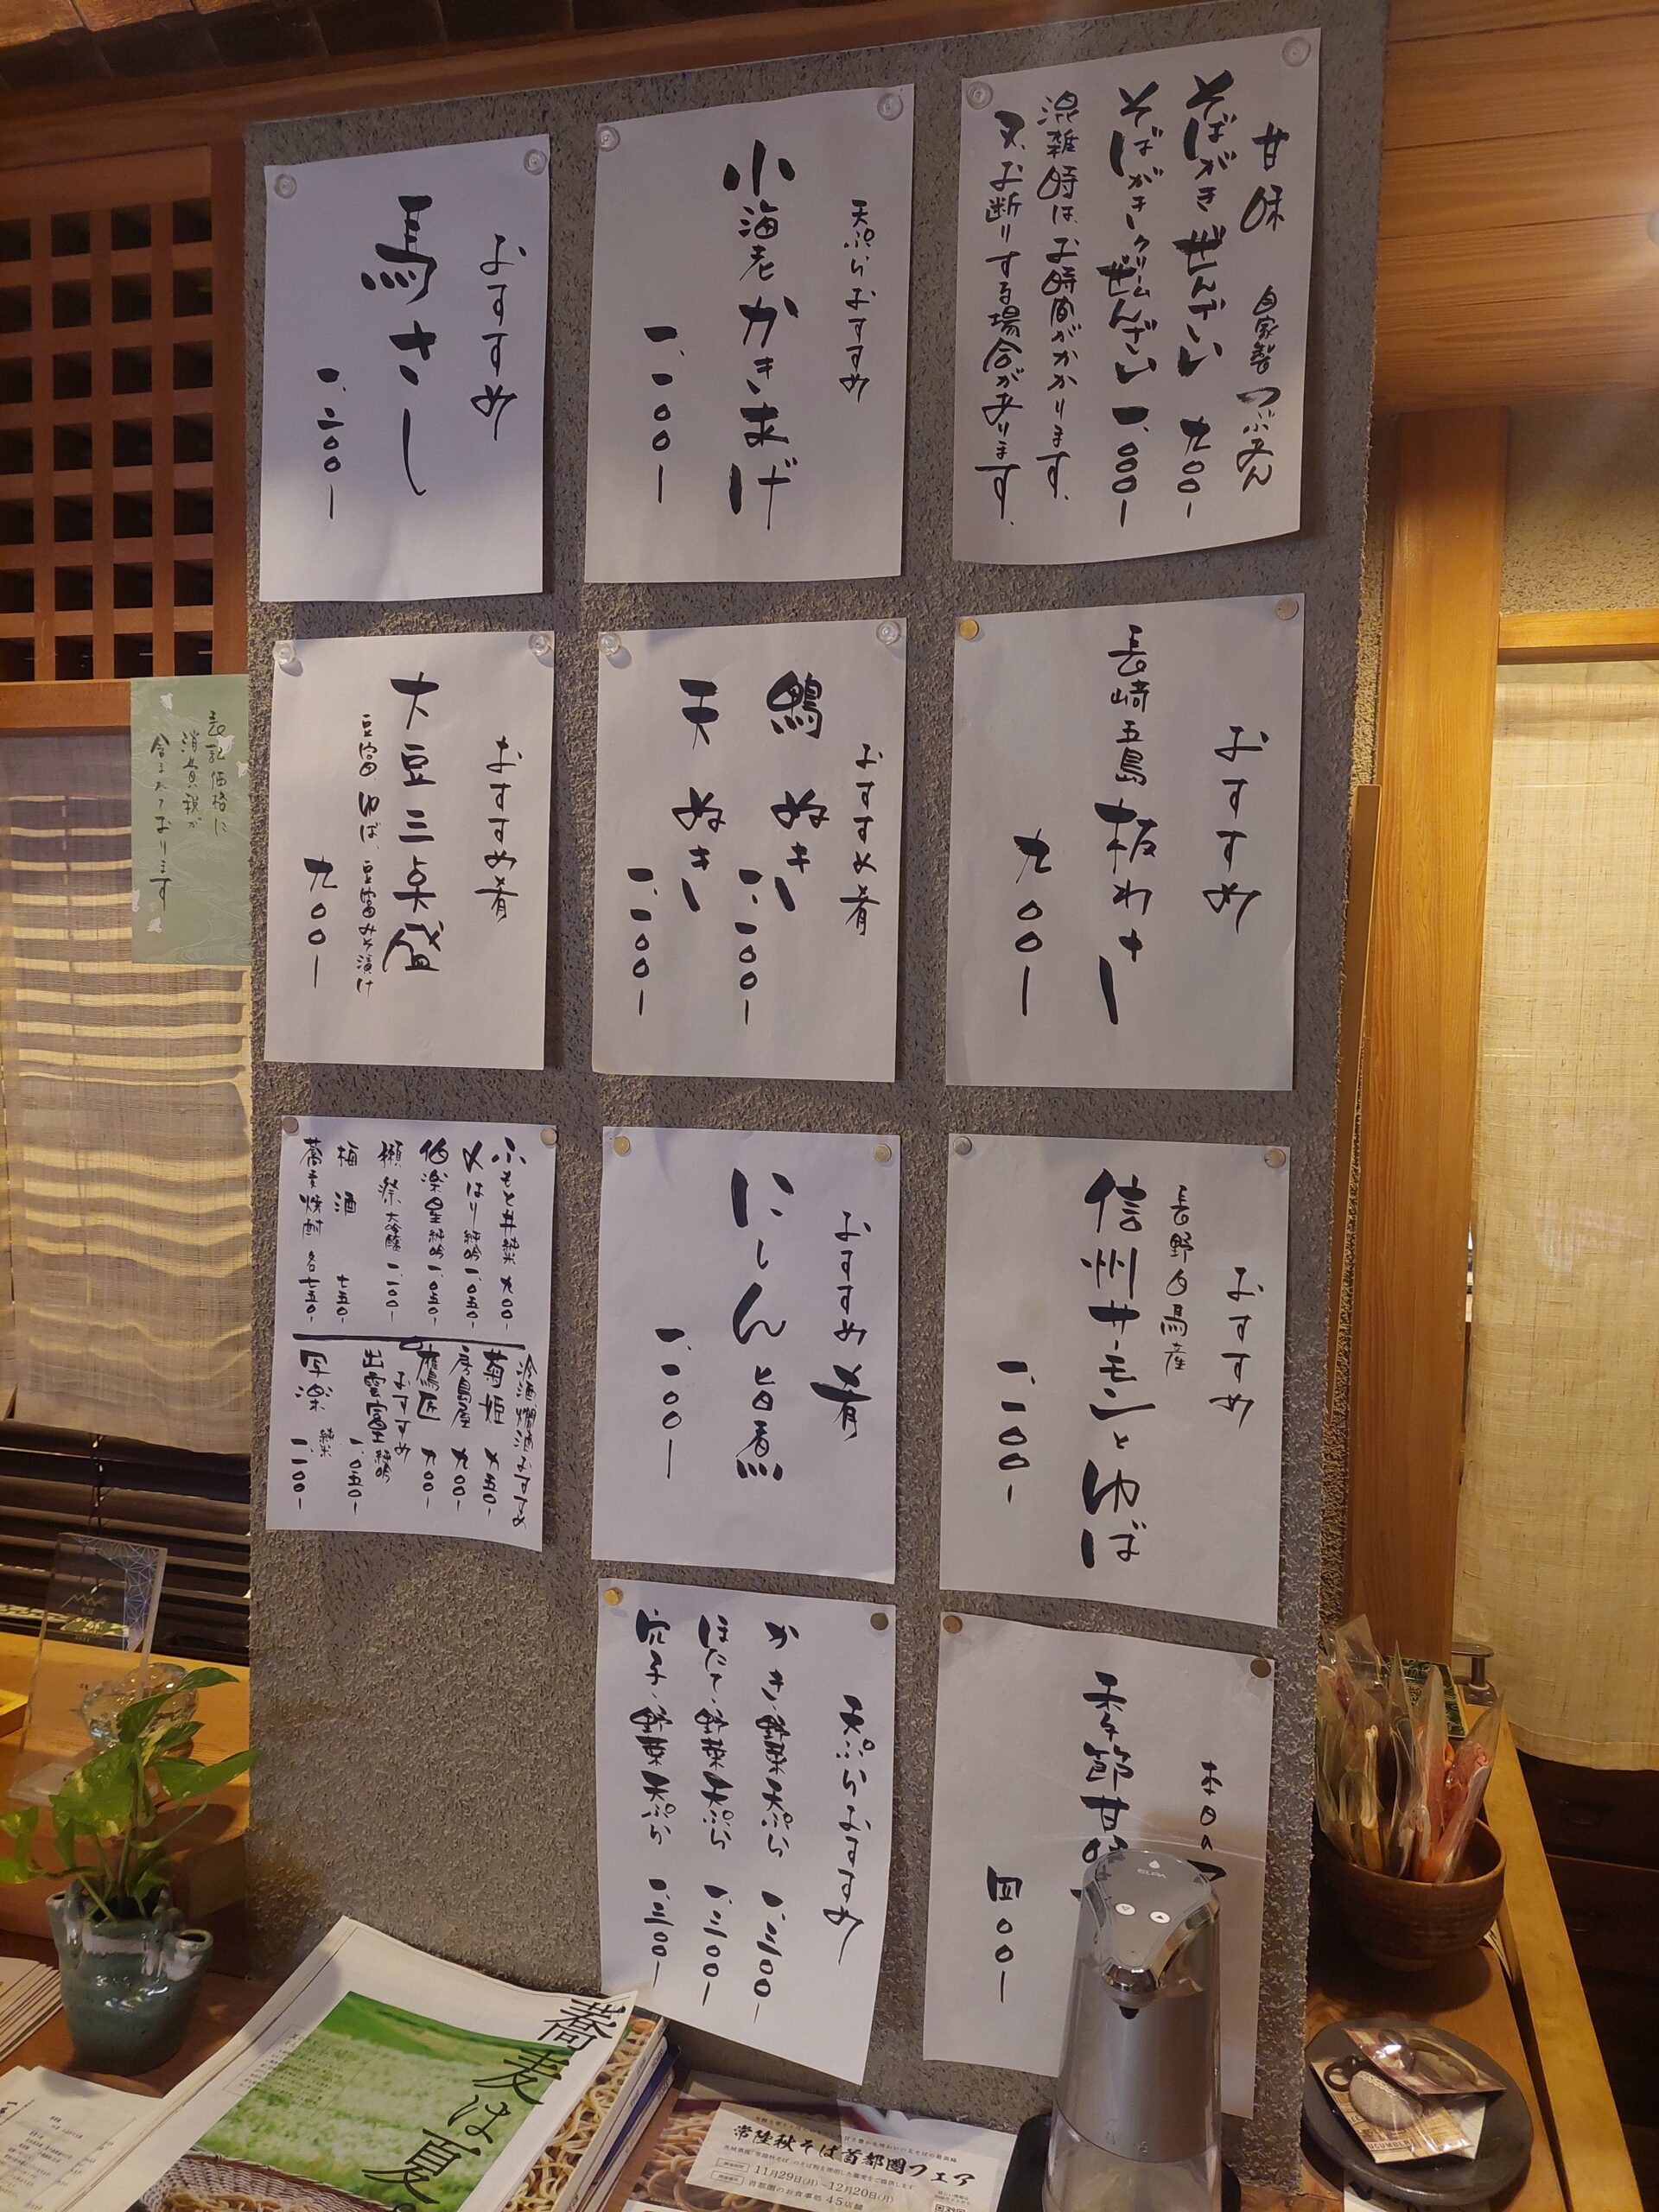 甘味 自家製つぶあん
そばがきぜんざい 九〇〇-
そばがきクリームぜんざい 一、〇〇〇-
混雑時は、お時間がかかります。
又、お断りする場合があります。
天ぷらおすすめ
小海老かきあげ
一、一〇〇-
おすすめ
馬さし
一、二〇〇-
おすすめ
長崎五島 板わさ
九〇〇-
おすすめ肴
鴨ぬき 一、一〇〇-
天ぬき 一、一〇〇-
おすすめ肴
大豆三点盛
豆富、ゆば、豆富みそ漬け
九〇〇-
表記価格に
消費税が
含まれております
おすすめ
長野白馬産
信州サーモンとゆば
一、一〇〇-
おすすめ肴
にしん旨煮
一、一〇〇-
ふもと井 九〇〇-
〆はり 純吟 一、〇五〇-
伯楽星 純吟 一、〇五〇-
獺祭 大吟醸 一、一〇〇-
梅酒 七五〇-
蕎麦焼酎 各七五〇-
冷酒燗酒おすすめ
菊姫
九〇〇-
鷹匠
おすすめ
出雲富士 純吟 一、〇五〇-
純米 一、一〇〇-
季節甘味
四〇〇-
天ぷらおすすめ
かき、野菜天ぷら
野菜天ぷら
野菜天ぷら
蕎麦は夏。
常陸秋そば首都圏フェア
11月29日(月)~12月20日(月)
首都圏のお食事処 45店舗